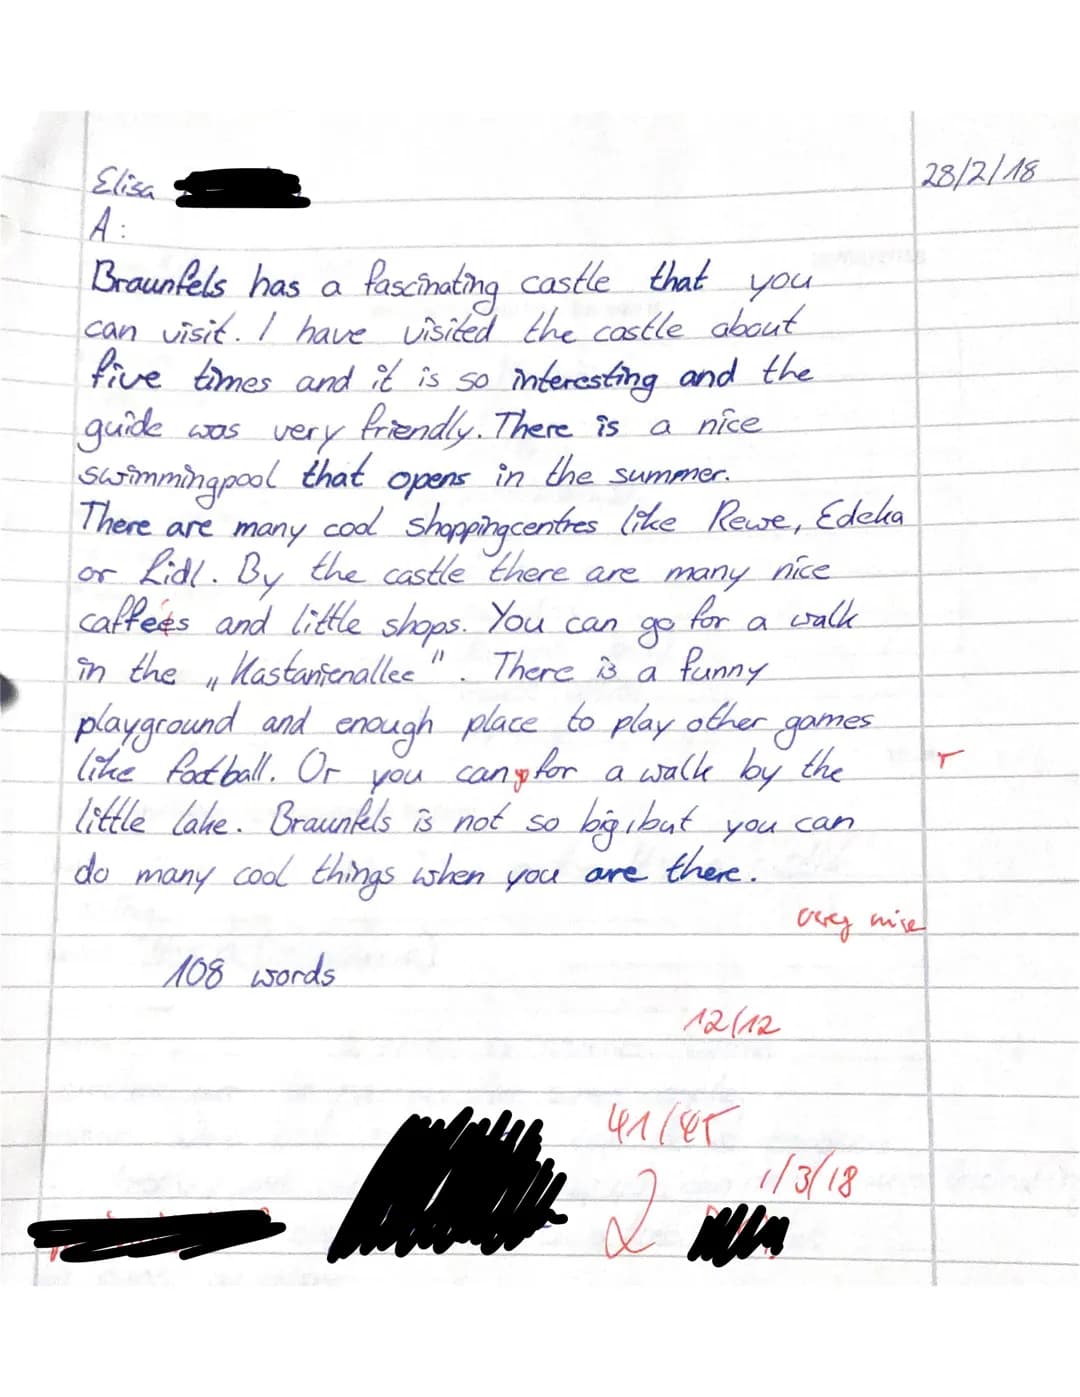 Elisa
28/2/18
A:
Braunfels has a fascinating castle that you
can visit. I have visited the castle about
five times and it is so interesting and the
guide was very friendly. There is a nice
swimmingpool that opens in the summer.
There are many cool shoppingcentres like Rewe, Edeka
or Lidl. By the castle there are many nice
caffees and little shops. You can go for a walk
in the „Kastanienallee". There is a funny
playground and enough place to play other games
like football. Or you can for a walk by the
little lake. Braunfels is not so big, but you can
do many cool things when you are there.
very nise
108 words
12/12
41/45
1/3/18
2